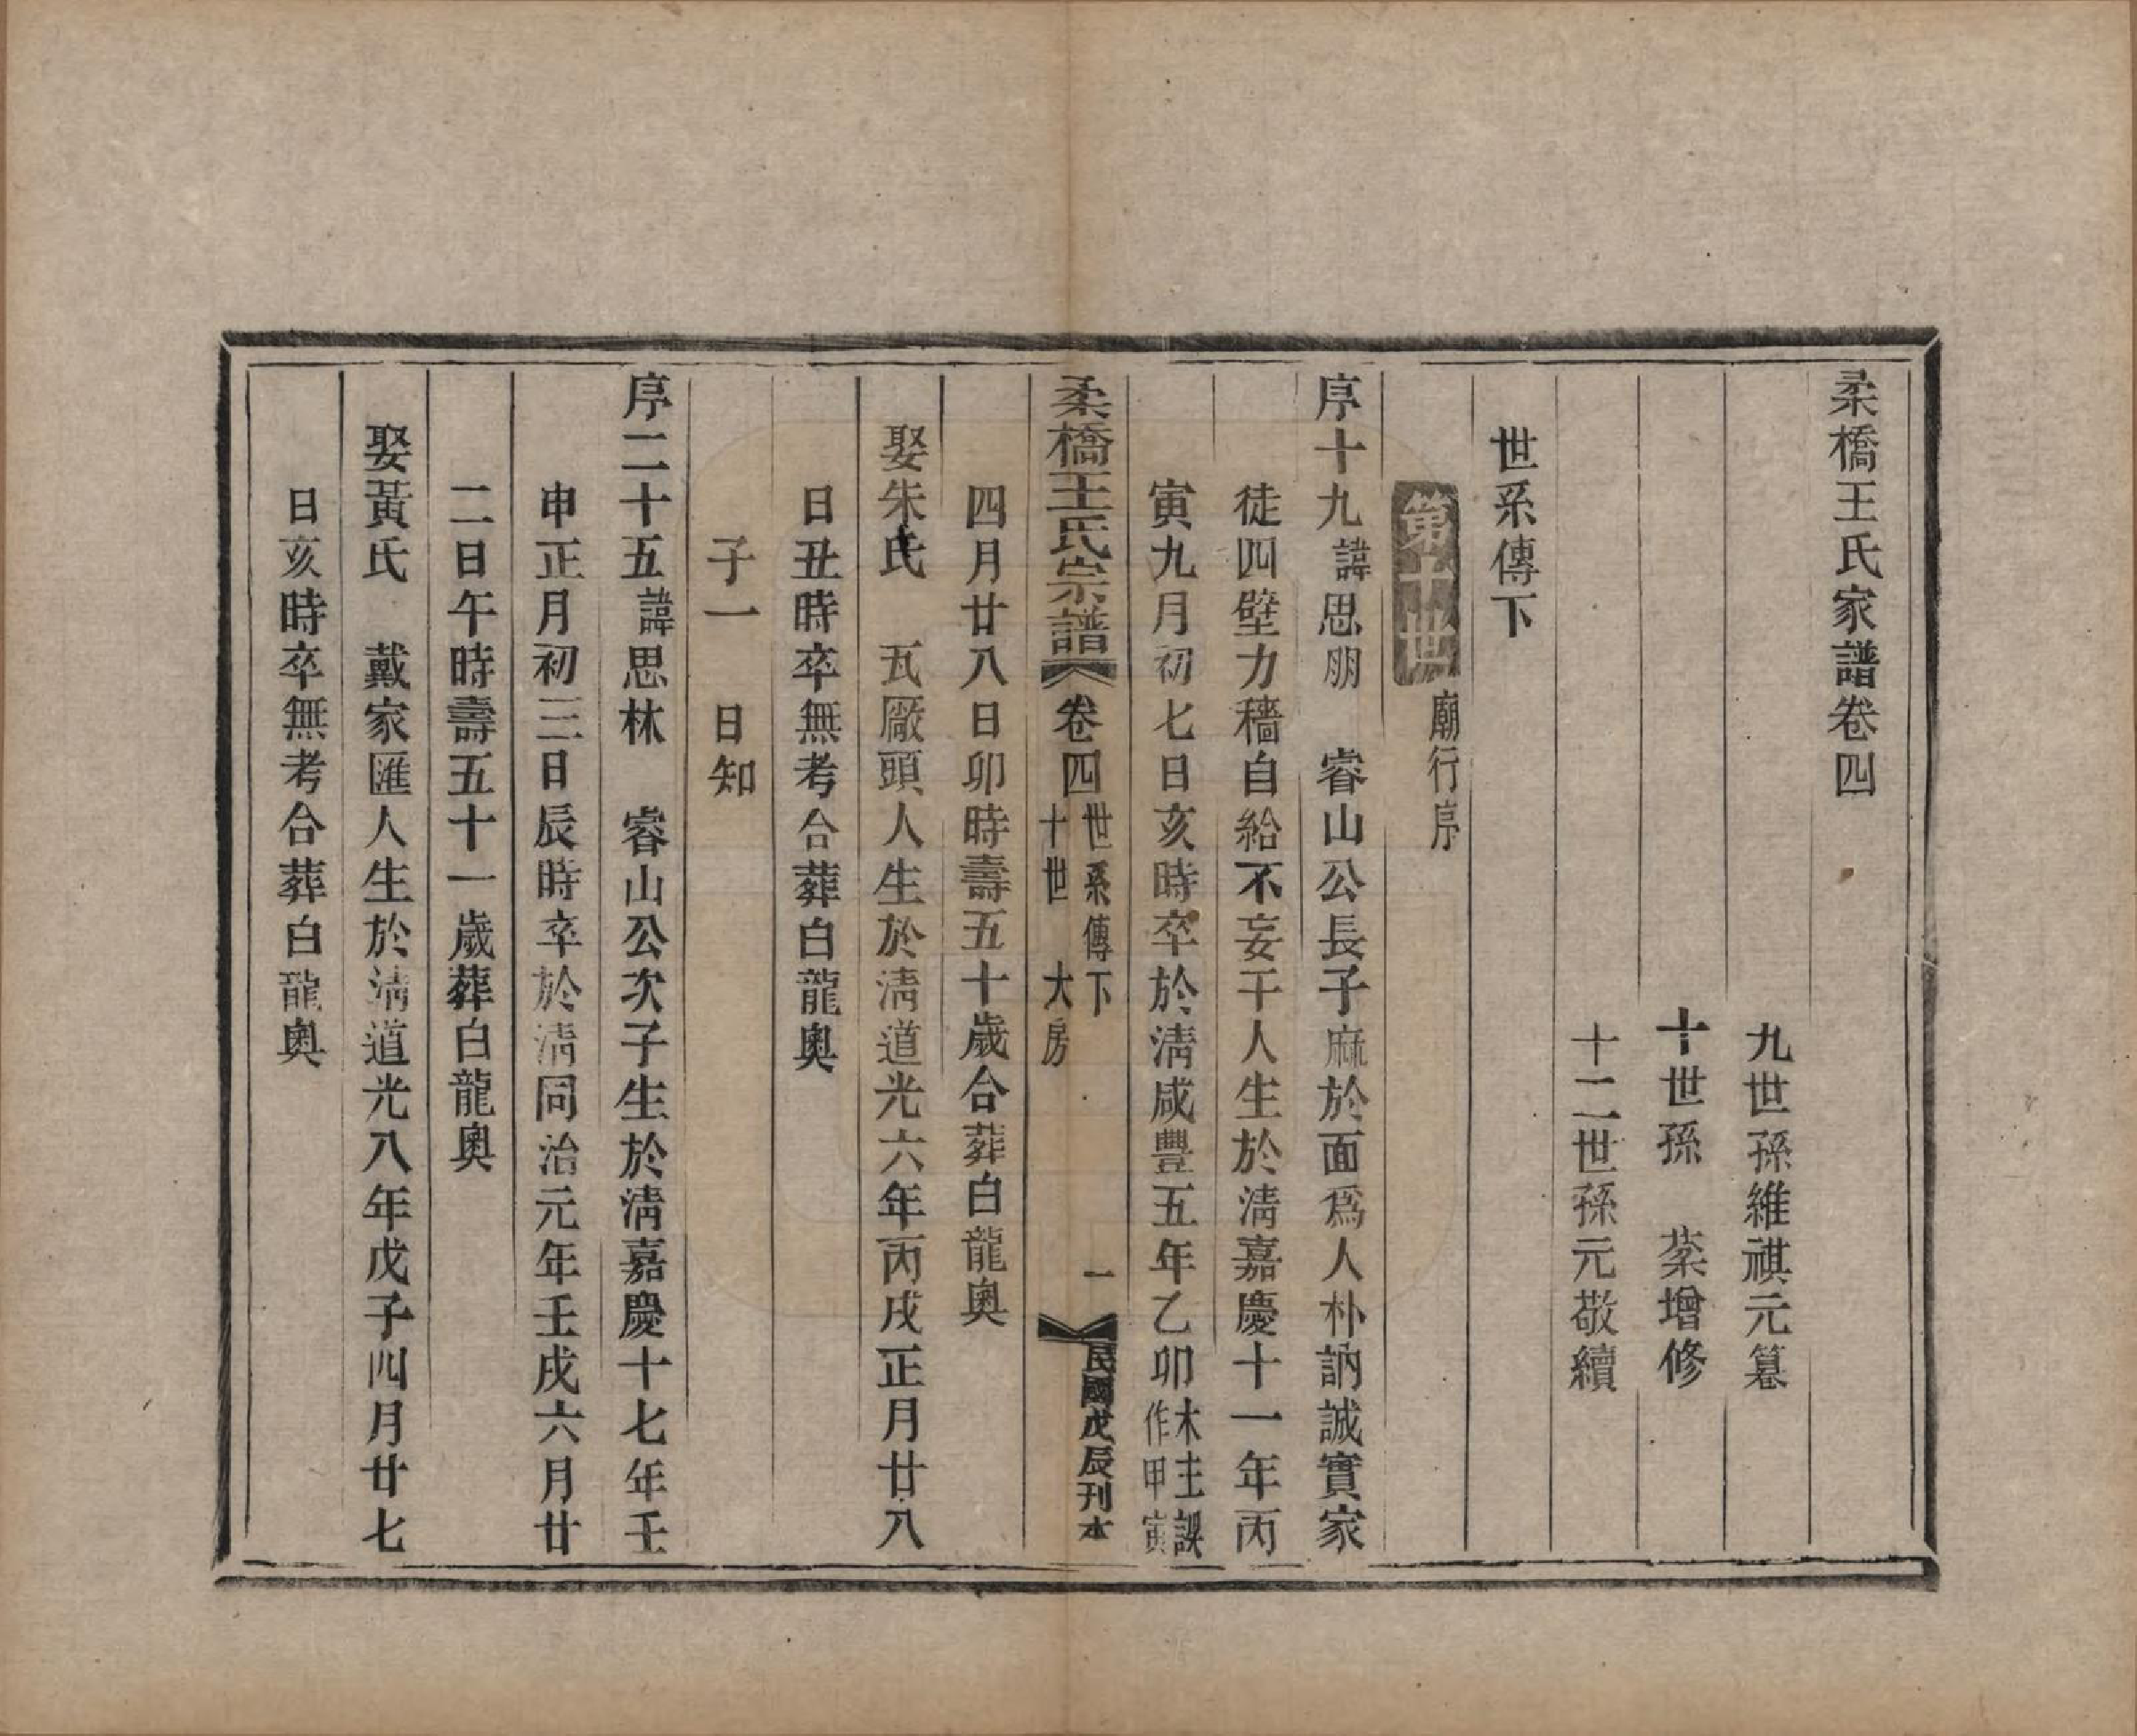 柔橋王氏家譜卷四
九世孫維祺元篹
十世孫　棻增修
十二世孫元敬續
世系傳下
第十世廟行序
序十九諱思朋　睿山公長子麻於面爲人朴訥誠實家
徒四壁力穡自給不妄干人生於淸嘉慶十一年丙
寅九月初七日亥時卒於淸咸豐五年乙卯木主誤作甲寅
柔橋王氏宗譜　卷四　世系傳下　十世　大房　一　民國戊辰刊本
四月廿八日卯時壽五十歲合葬白龍奧
娶朱氏　瓦厰頭人生於淸道光六年丙戌正月廿八
日丑時卒無考合葬白龍奧
子一　日知
序二十五諱思林　睿山公次子生於淸嘉慶十七年壬
申正月初三日辰時卒於淸同治元年壬戌六月廿
二日午時壽五十一歲葬白龍奧
娶黃氏　戴家匯人生於淸道光八年戊子四月廿七
日亥時卒無考合葬白龍奧